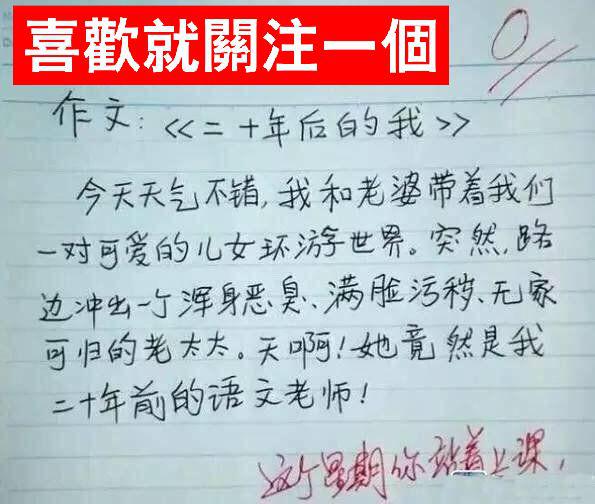 喜歡就關注一個
0
作文:《二十年后的我》
今天天气不错,我和老婆带着我们
一对可爱的儿女环游世界。突然,路
边冲出一个浑身恶臭、满脸污秽、无家
可归的老太太。天啊!她竟然是我
二十年前的语文老师!
这个星期你站着上课,